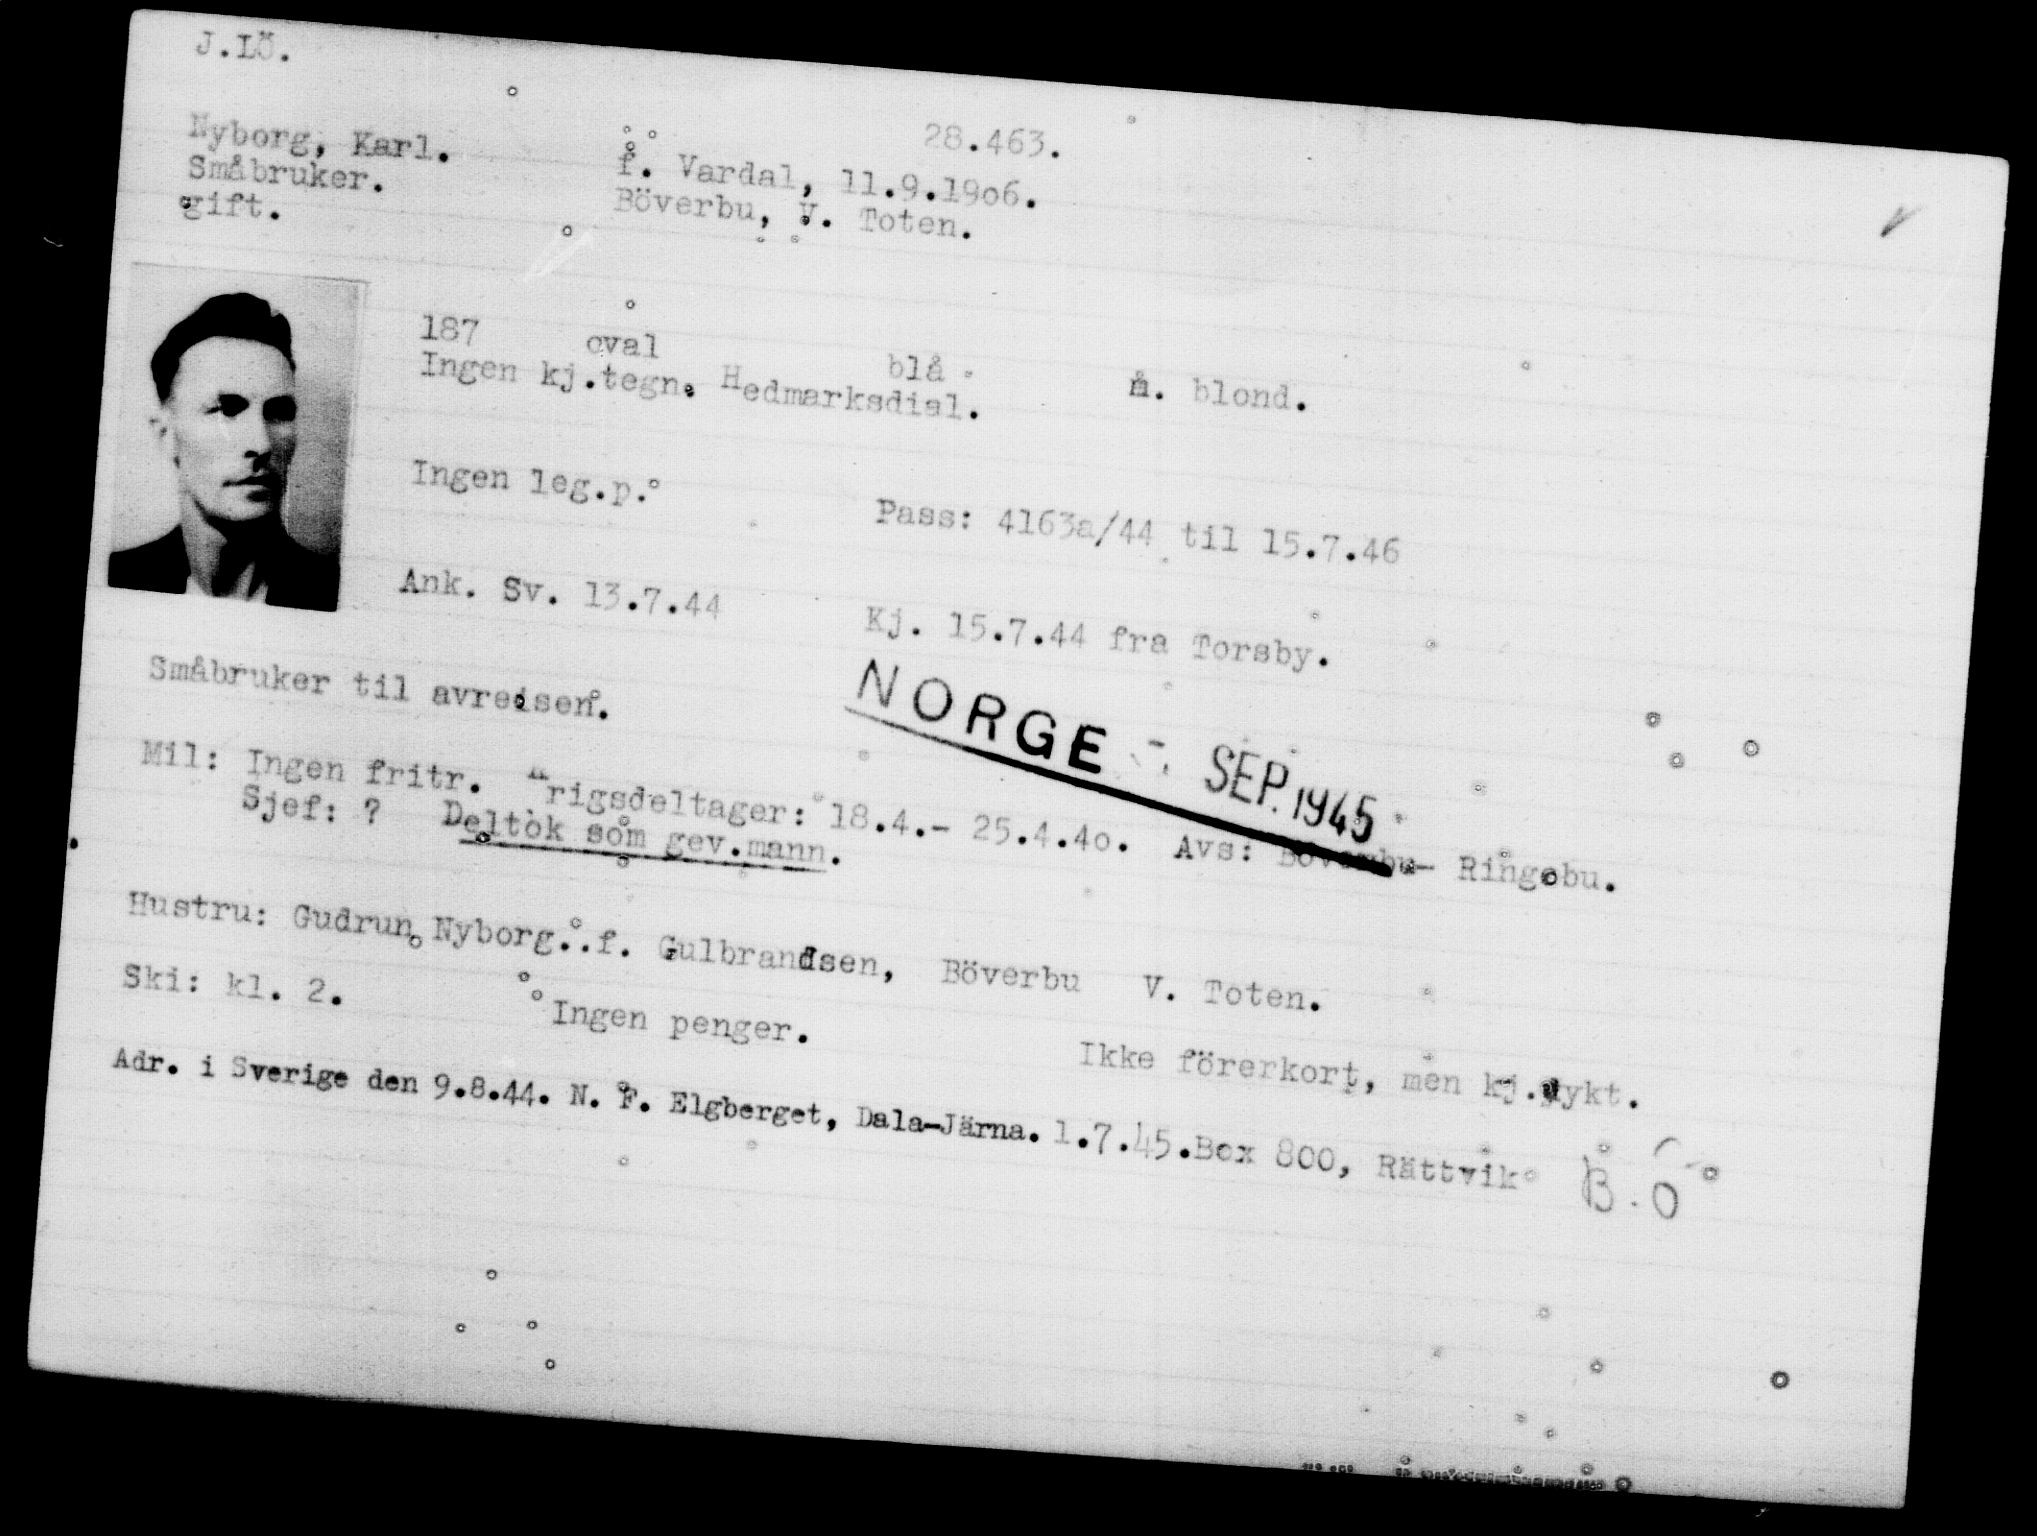 J.LÖ.
28.463.
Nyborg, Karl. f. Vardal, 11.9.19o6.
Småbruker. Böverbu, V. Toten.
gift.
187 oval blå m. blond.
Ingen kj.tegn. Hedmarksdial.
Ingen leg.p. Pass: 4163a/44 til 15.7.46
Ank. Sv. 13.7.44 Kj. 15.7.44 fra Torsby.
Småbruker til avreisen.
NORGE - SEP. 1945
Mil: Ingen fritr. rigsdeltager: 18.4.- 25.4.4o. Avs: Böverbu- Ringebu.
Sjef: ? Deltok som gev.mann.
Hustru: Gudrun Nyborg..f. Gulbrandsen, Böverbu V. Toten.
Ski: kl. 2. Ingen penger. Ikke förerkort, men kj.dykt.
Adr. i Sverige den 9.8.44. N. F. Elgberget, Dala-Järna. 1.7.45.Box 800, Rättvik